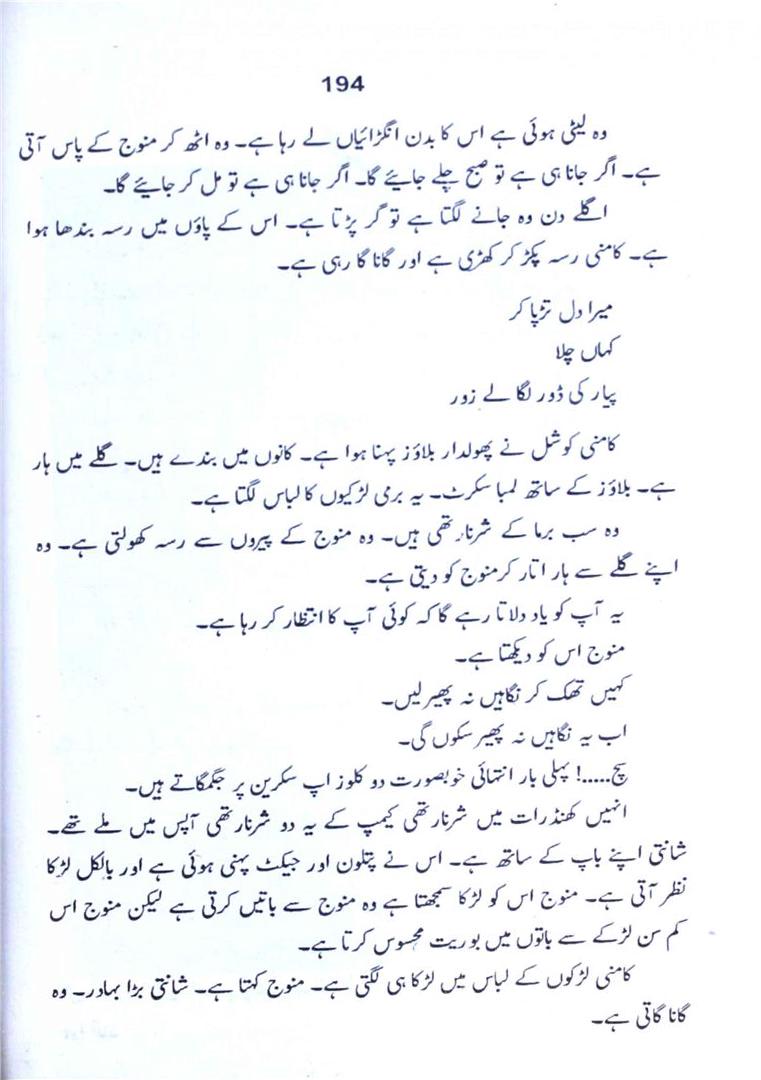 194
وہ لیٹی ہوئی ہے اس کا بدن انگڑائیاں لے رہا ہے۔ وہ اٹھ کر منوج کے پاس آتی
ہے۔ اگر جانا ہی ہے تو صبح چلے جائیے گا۔ اگر جانا ہی ہے تو مل کر جائیے گا۔
اگلے دن وہ جانے لگتا ہے تو گر پڑتا ہے۔ اس کے پاؤں میں رسہ بندھا ہوا
ہے۔ کامنی رسہ پکڑ کر کھڑی ہے اور گانا گا رہی ہے۔
میرا دل تڑپا کر
کہاں چلا
پیار کی ڈور لگا لے زور
کامنی کوشل نے پھولدار بلاؤز پہنا ہوا ہے۔ کانوں میں بندے ہیں۔ گلے میں ہار
ہے۔ بلاؤز کے ساتھ لمبا سکرٹ۔ یہ برمی لڑکیوں کا لباس لگتا ہے۔
وہ سب برما کے شرنارتھی ہیں۔ وہ منوج کے پیروں سے رسہ کھولتی ہے۔ وہ
اپنے گلے سے ہار اتار کر منوج کو دیتی ہے۔
یہ آپ کو یاد دلاتا رہے گا کہ کوئی آپ کا انتظار کر رہا ہے۔
منوج اس کو دیکھتا ہے۔
کہیں تھک کر نگاہیں نہ پھیر لیں۔
اب یہ نگاہیں نہ پھیر سکوں گی۔
سچ.....! پہلی بار انتہائی خوبصورت دو کلوز اپ سکرین پر جگمگاتے ہیں۔
انہیں کھنڈرات میں شرنارتھی کیمپ کے یہ دو شرنارتھی آپس میں ملے تھے۔
شانتی اپنے باپ کے ساتھ ہے۔ اس نے پتلون اور جیکٹ پہنی ہوئی ہے اور بالکل لڑکا
نظر آتی ہے۔ منوج اس کو لڑکا سمجھتا ہے وہ منوج سے باتیں کرتی ہے لیکن منوج اس
کم سن لڑکے سے باتوں میں بوریت محسوس کرتا ہے۔
کامنی لڑکوں کے لباس میں لڑکا ہی لگتی ہے۔ منوج کہتا ہے۔ شانتی بڑا بہادر۔ وہ
گانا گاتی ہے۔